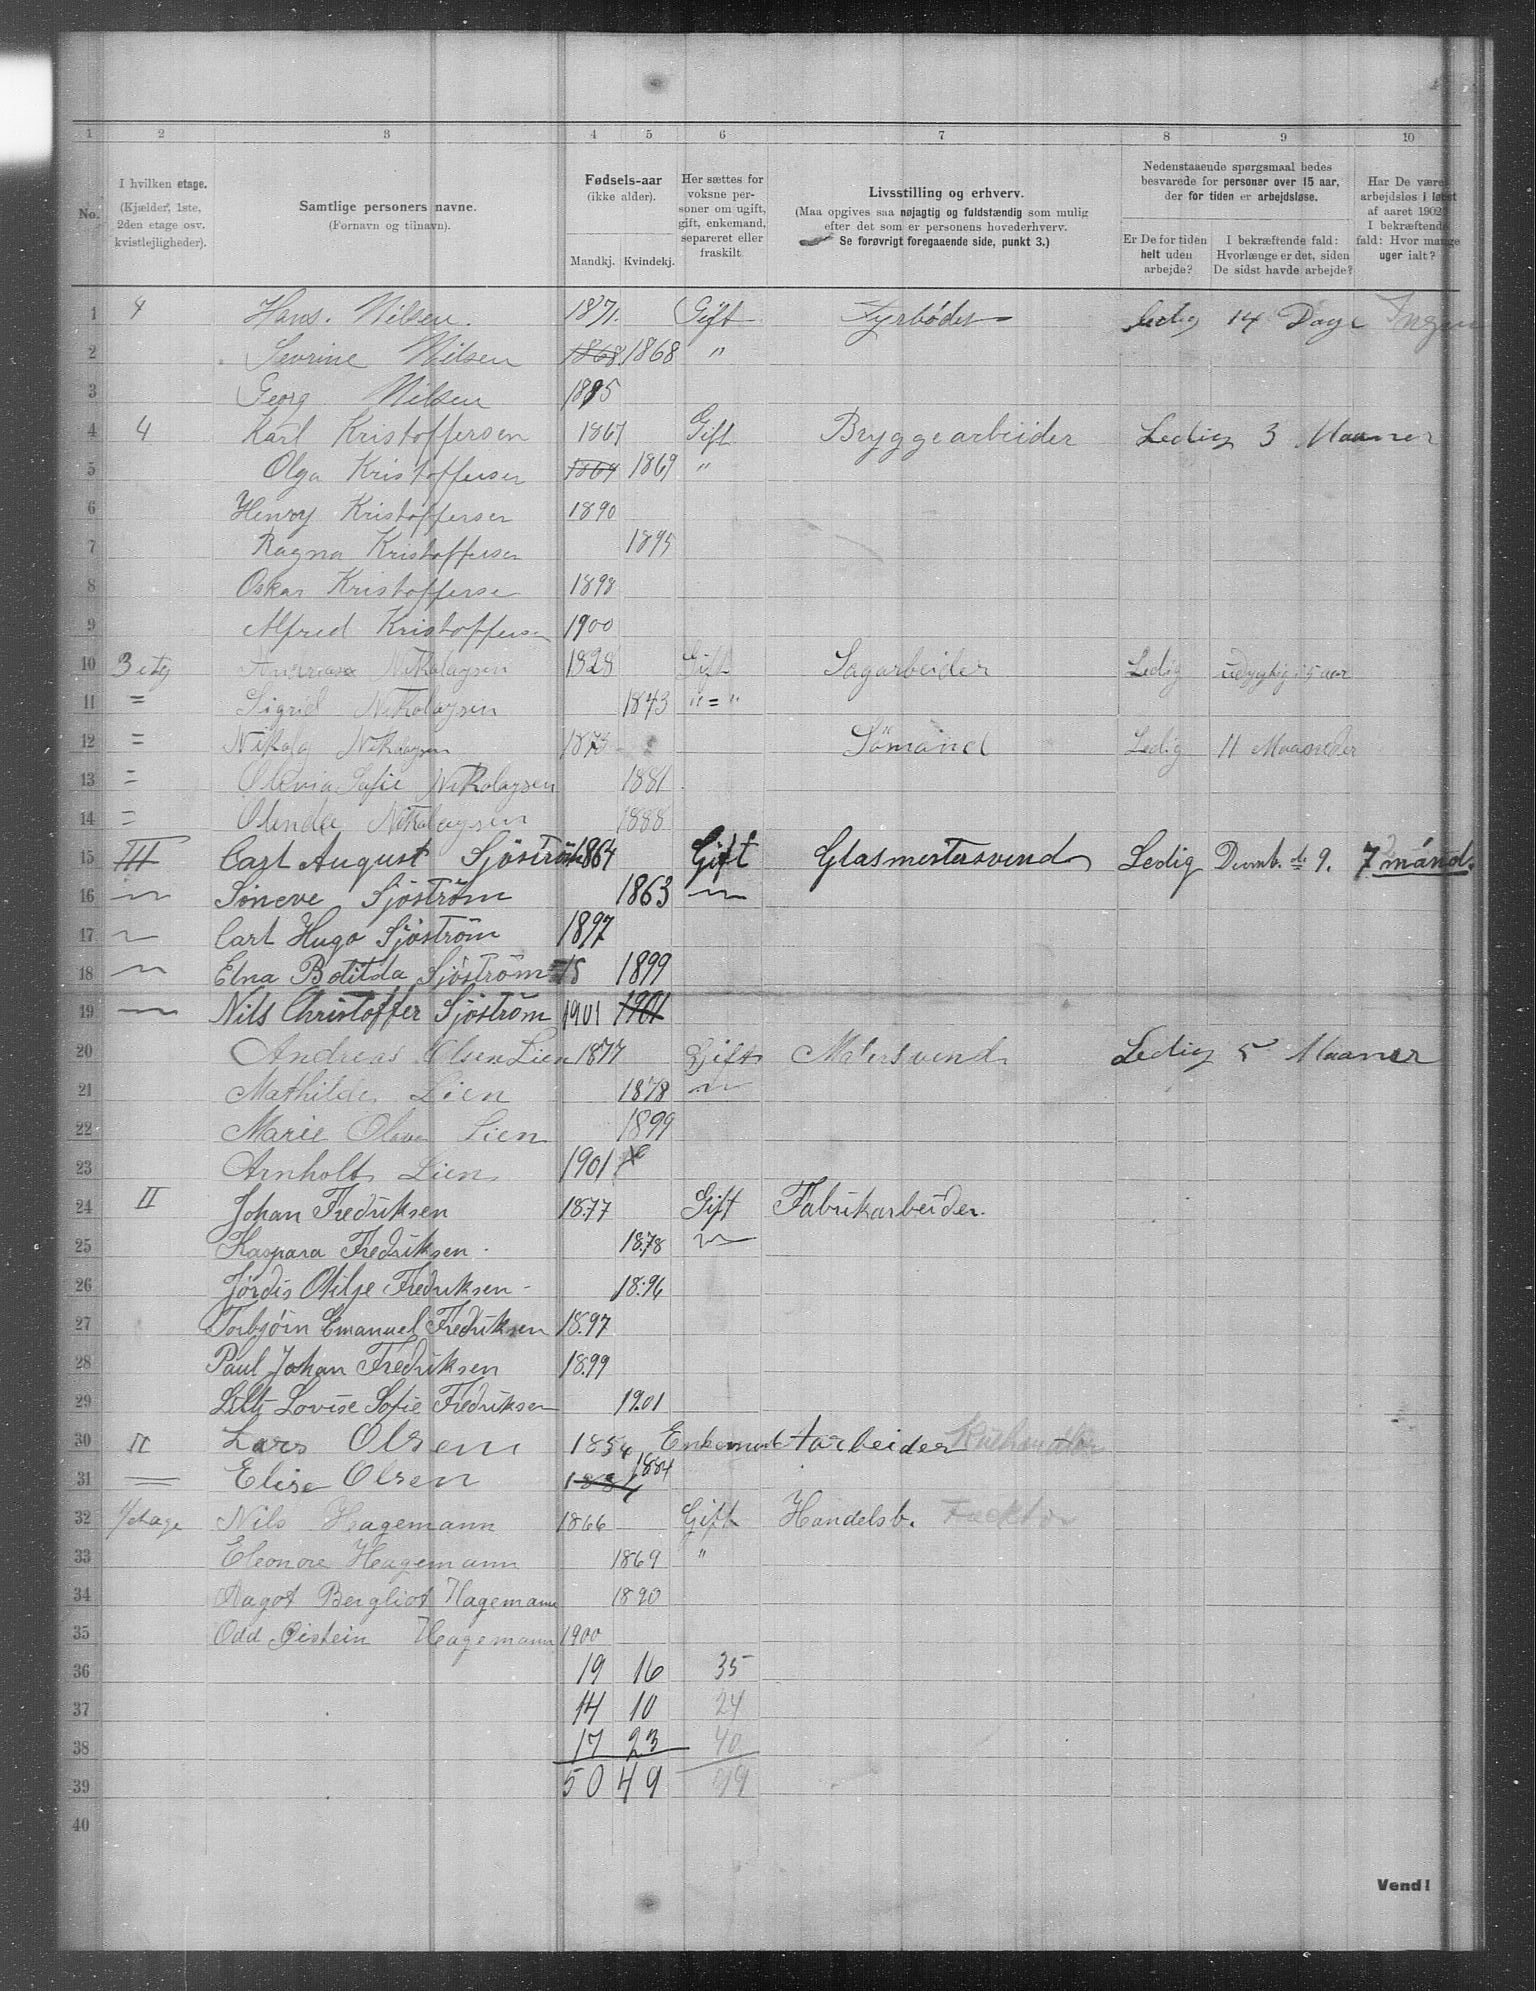 1 2 3 4 5 6 7 8 9 10
No. I hvilken etage. (Kjælder, 1ste, 2den etage osv. kvistlejligheder). Samtlige personers navne. (Fornavn og tilnavn). Fødsels-aar (ikke alder). Mandkj. Kvindekj. Her sættes for voksne personer om ugift, gift, enkemand, separeret eller fraskilt. Livsstilling og erhverv. (Maa opgives saa nøjagtig og fuldstændig som mulig efter det som er personens hovederhverv. Se forøvrigt foregaaende side, punkt 3.) Nedenstaaende spørgsmaal bedes besvarede for personer over 15 aar, der for tiden er arbejdsløse. Er De for tiden helt uden arbejde? I bekræftende fald: Hvorlænge er det, siden De sidst havde arbejde? Har De været arbejdsløs i løbet af aaret 1902? I bekræftende fald: Hvor mange uger ialt?
1 4 Hans. Nilsen. 1871. Gift Fyrbøder Ledig 14 Dage Ingen
2 Sevrine Nilsen 1868 1868 "
3 Georg Nilsen 1895
4 4 Karl Kristoffersen 1867 Gift Bryggearbeider Ledig 3 Maaner
5 Olga Kristoffersen 1869 1869 "
6 Henry Kristoffersen 1890
7 Ragna Kristoffersen 1895
8 Oskar Kristofferse 1898
9 Alfred Kristoffersen 1900
10 3 etg Andreas Nikolaysen 1828 Gift Sagarbeider Ledig 5 aar
11 = Sigrid Nikolaysen 1843 " = "
12 = Nikolai Nikolaysen 1873 Sömand Ledig 11 Maaneder
13 = Olevia Sofie Nikolaysen 1881
14 = Olinda Nikolaysen 1888
15 III Carl August Sjöström 1864 Gift Glasmestersvend Ledig Decmb. d. 9. 7 månd.
16 " Söneve Sjöström 1863 "
17 " Carl Hugo Sjöström 1897
18 " Elna Botilda Sjöström 18 1899
19 " Nils Christoffer Sjöström 1901 1901
20 Andreas Olsen Lien 1877 Gift Malersvend Ledig 5 Maaner
21 Mathilde Lien 1878 "
22 Marie Olava Lien 1899
23 Arnholt Lien 1901
24 II Johan Fredriksen 1877 Gift Fabrikarbeider.
25 Kaspara Fredriksen. 1878 "
26 Jórdis Otilje Fredriksen 1896
27 Torbjørn Emanuel Fredriksen 1897
28 Paul Johan Fredriksen 1899
29 Lilly Lovise Sofie Fredriksen 1901
30 II Lars Olsen 1854 Enkemand Arbeider
31 = Elise Olsen 1884 1884
32 1/etage Nils Hagemann 1866 Gift Handelsb. Faktor
33 Eleonore Hagemann 1869 "
34 Aagot Bergliot Hagemann 1890
35 Odd Øistein Hagemann 1900
36 19 16 35
37 14 10 24
38 17 23 40
39 50 49 99
40
Vend!